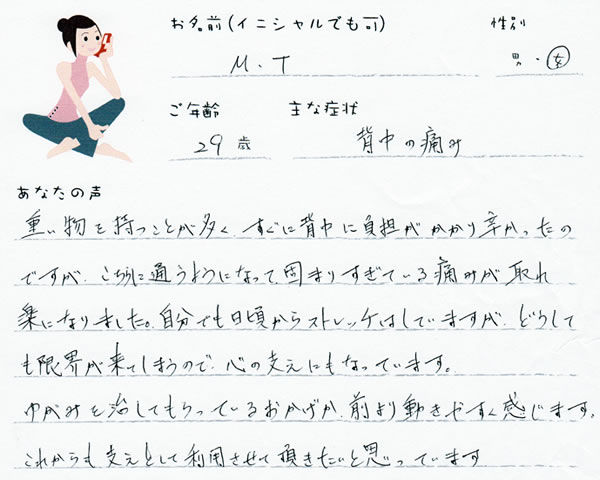 お名前(イニシャルでも可)
性別
M.T
男・女
ご年齢
主な症状
29歳
背中の痛み
あなたの声
重い物を持つことが多く、すぐに背中に負担がかかり辛かったの
ですが、こちらに通うようになって、固まりすぎている痛みが取れ
楽になりました。自分でも日頃からストレッチはしていますが、どうして
も限界が来てしまうので、心の支えにもなっています。
ゆがみを治してもらっているおかげか、前より動きやすく感じます。
これからも支えとして利用させて頂きたいと思っています